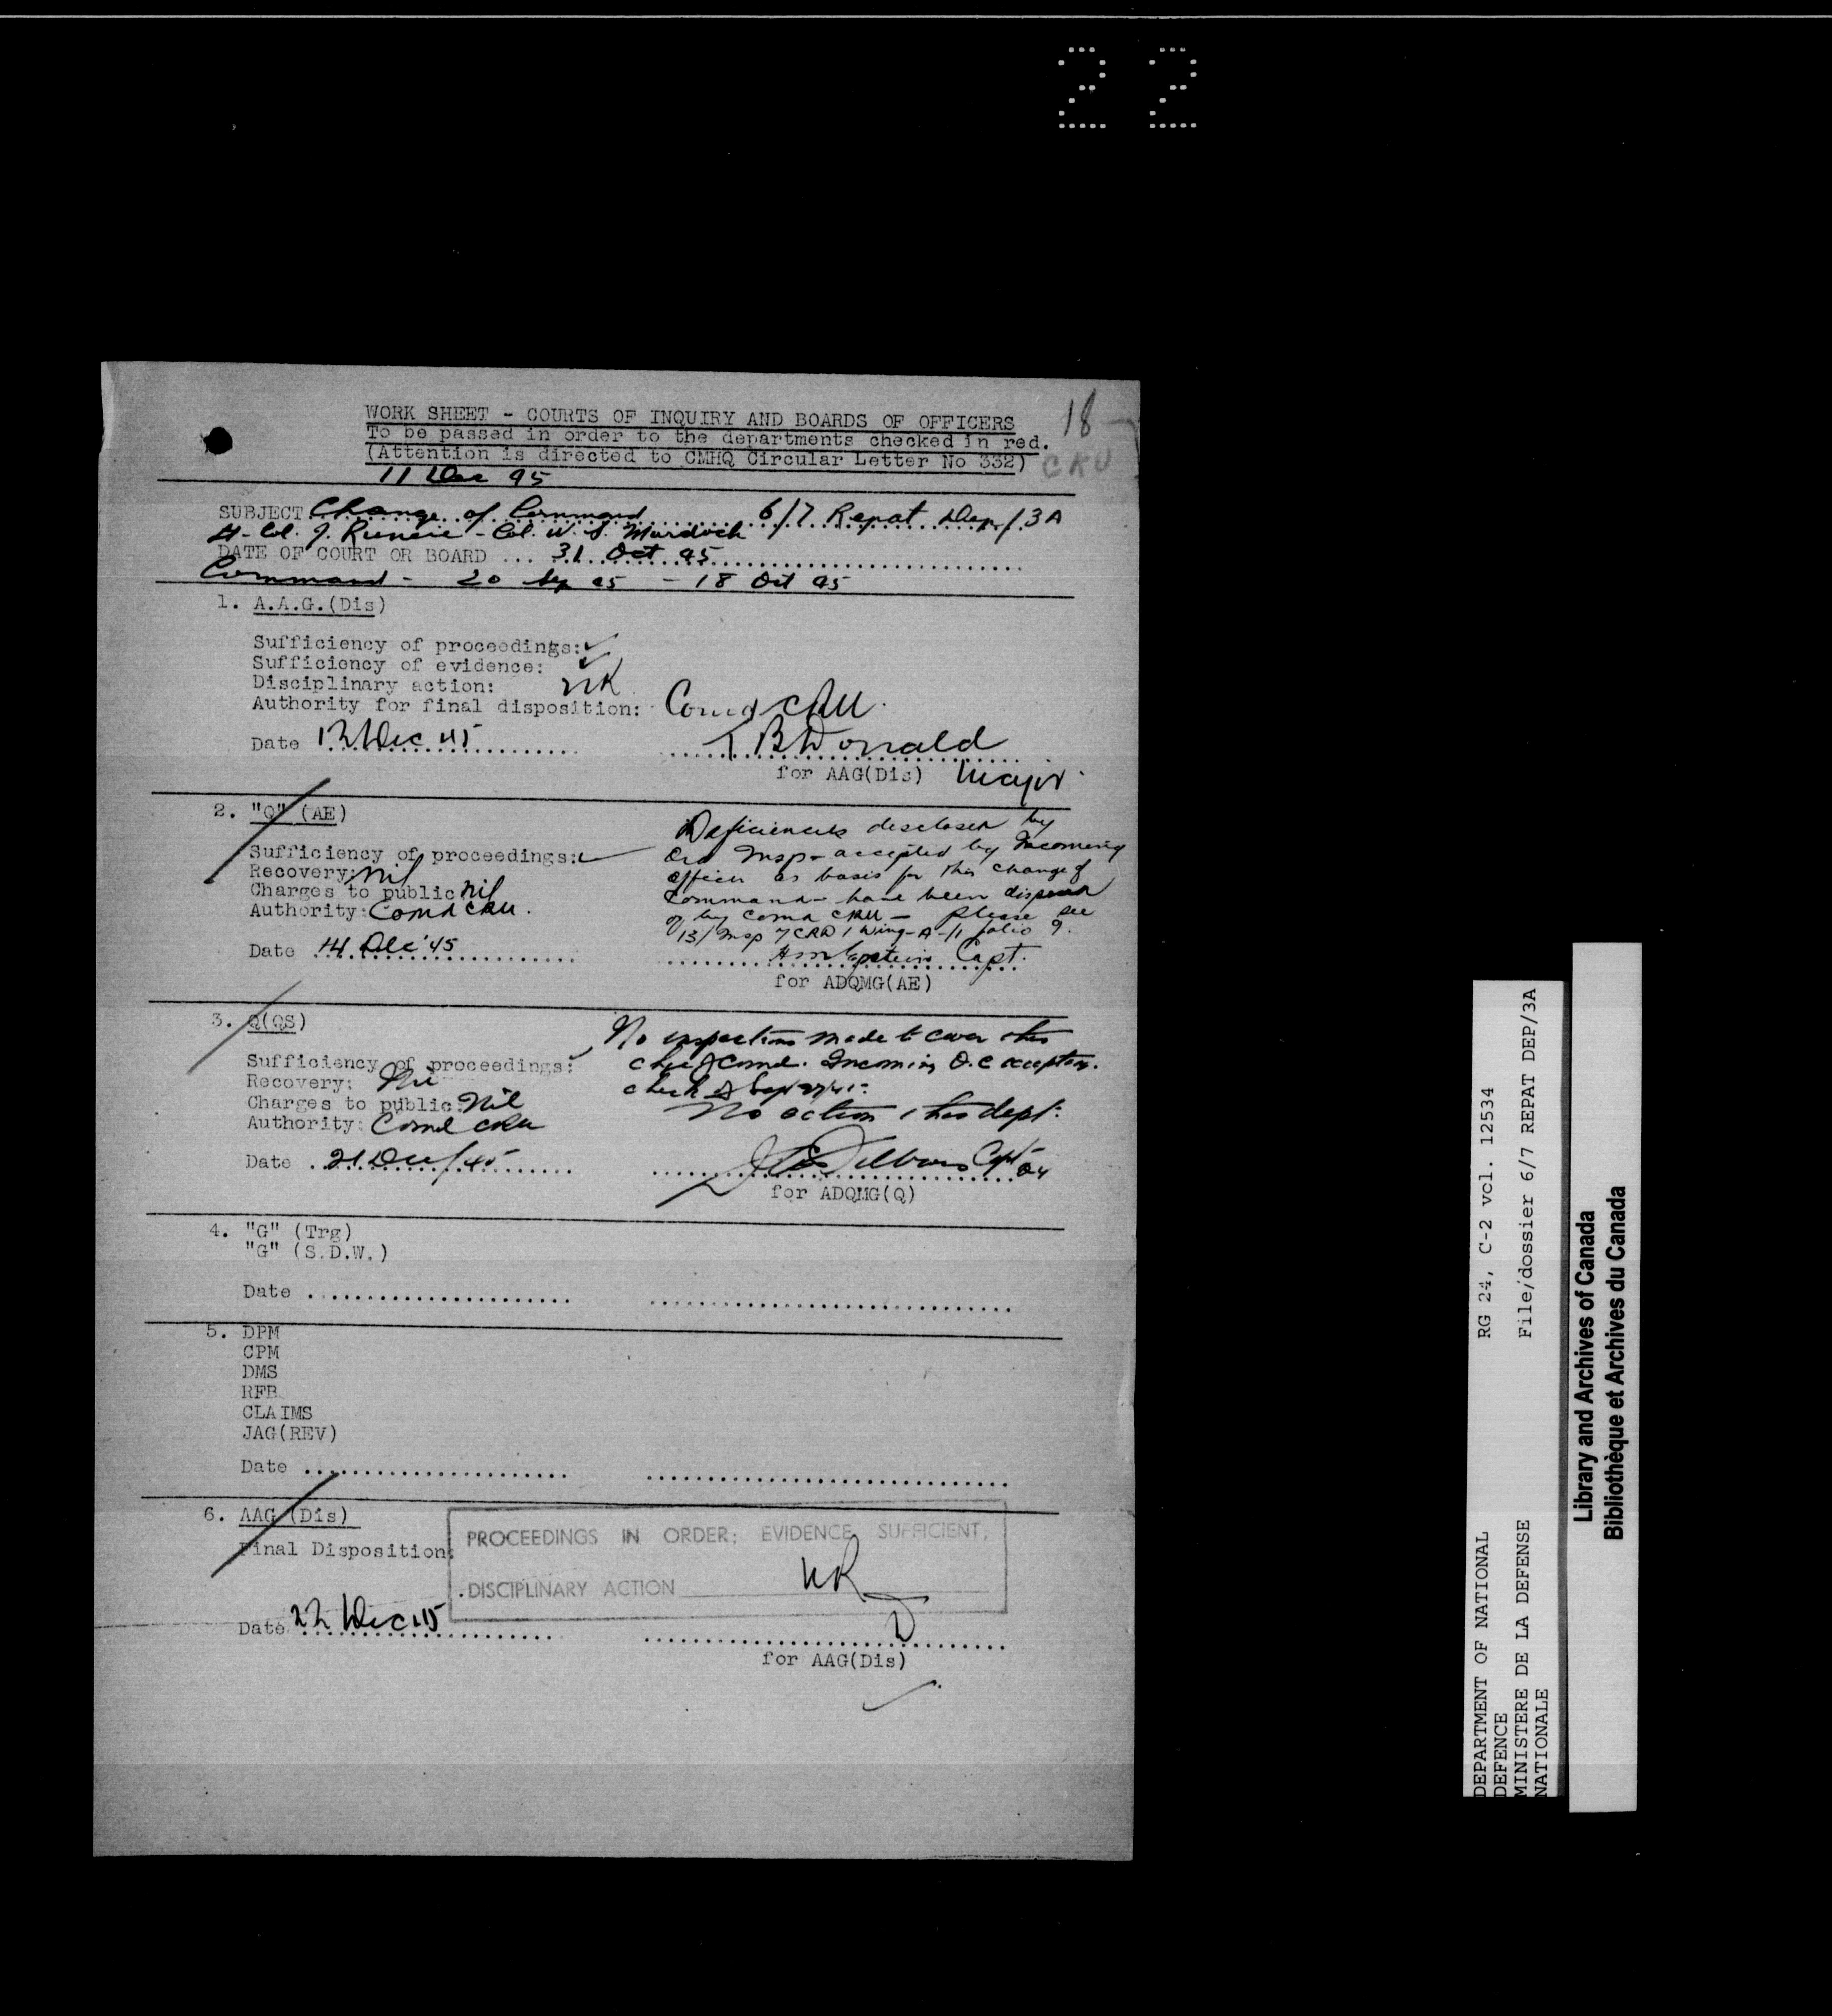 22
WORK SHEET - COURTS OF INQUIRY AND BOARDS OF OFFICERS
To be passed in order to the departments checked in red.
(Attention is directed to CMHQ Circular Letter No 332)
18
CRU
11 Dec 45
SUBJECT Change of Command 6/7 Repat Dep/3A
Lt-Col. J. Runcie - Col. W. S. Murdoch
DATE OF COURT OR BOARD ... 31 Oct 45
Command - 20 Sep 45 - 18 Oct 45
1. A.A.G.(Dis)
Sufficiency of proceedings: ✓
Sufficiency of evidence: ✓
Disciplinary action: NR
Authority for final disposition: Comd CRU.
Date 12 Dec 45 Donald
for AAG(Dis) Major
2. "Q" (AE)
Deficiencies disclosed by
Ord Insp - accepted by Incoming
Officer as basis for this change of
Command - have been disposed
of by Comd CRU - Please see
13/Insp 7 CRD 1 Wing-A-11 folio 9.
Sufficiency of proceedings: ✓
Recovery: nil
Charges to public nil
Authority: Comd CRU.
Date 14 Dec '45 Capt.
for ADQMG(AE)
3. Q(QS)
No inspections made to cover this
chge of Comd. Incoming O.C accepting
check of Sep 27/45.
No action this dept.
Sufficiency of proceedings: ✓
Recovery: Nil
Charges to public: Nil
Authority: Comd CRU
Date 21 Dec/45 Capt
for ADQMG(Q)
4. "G" (Trg)
"G" (S.D.W.)
Date
5. DPM
CPM
DMS
RFB
CLAIMS
JAG(REV)
Date
6. AAG (Dis)
Final Disposition:
PROCEEDINGS IN ORDER; EVIDENCE SUFFICIENT;
DISCIPLINARY ACTION NR
Date 22 Dec 45 D
for AAG(Dis)
DEPARTMENT OF NATIONAL DEFENCE
MINISTERE DE LA DEFENSE NATIONALE
RG 24, C-2 vol. 12534
File/dossier 6/7 REPAT DEP/3A
Library and Archives of Canada
Bibliothèque et Archives du Canada